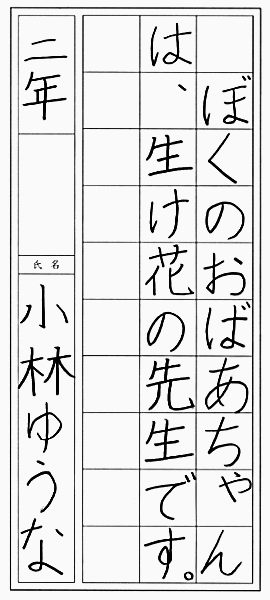 ぼくのおばあちゃん
は、生け花の先生です。
二年
氏名
小林ゆうな